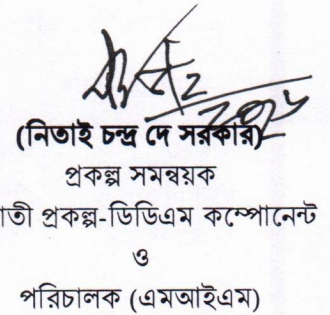 (নিতাই চন্দ্র দে সরকার)
প্রকল্প সমন্বয়ক
াতী প্রকল্প-ডিডিএম কম্পোনেন্ট
ও
পরিচালক (এমআইএম)